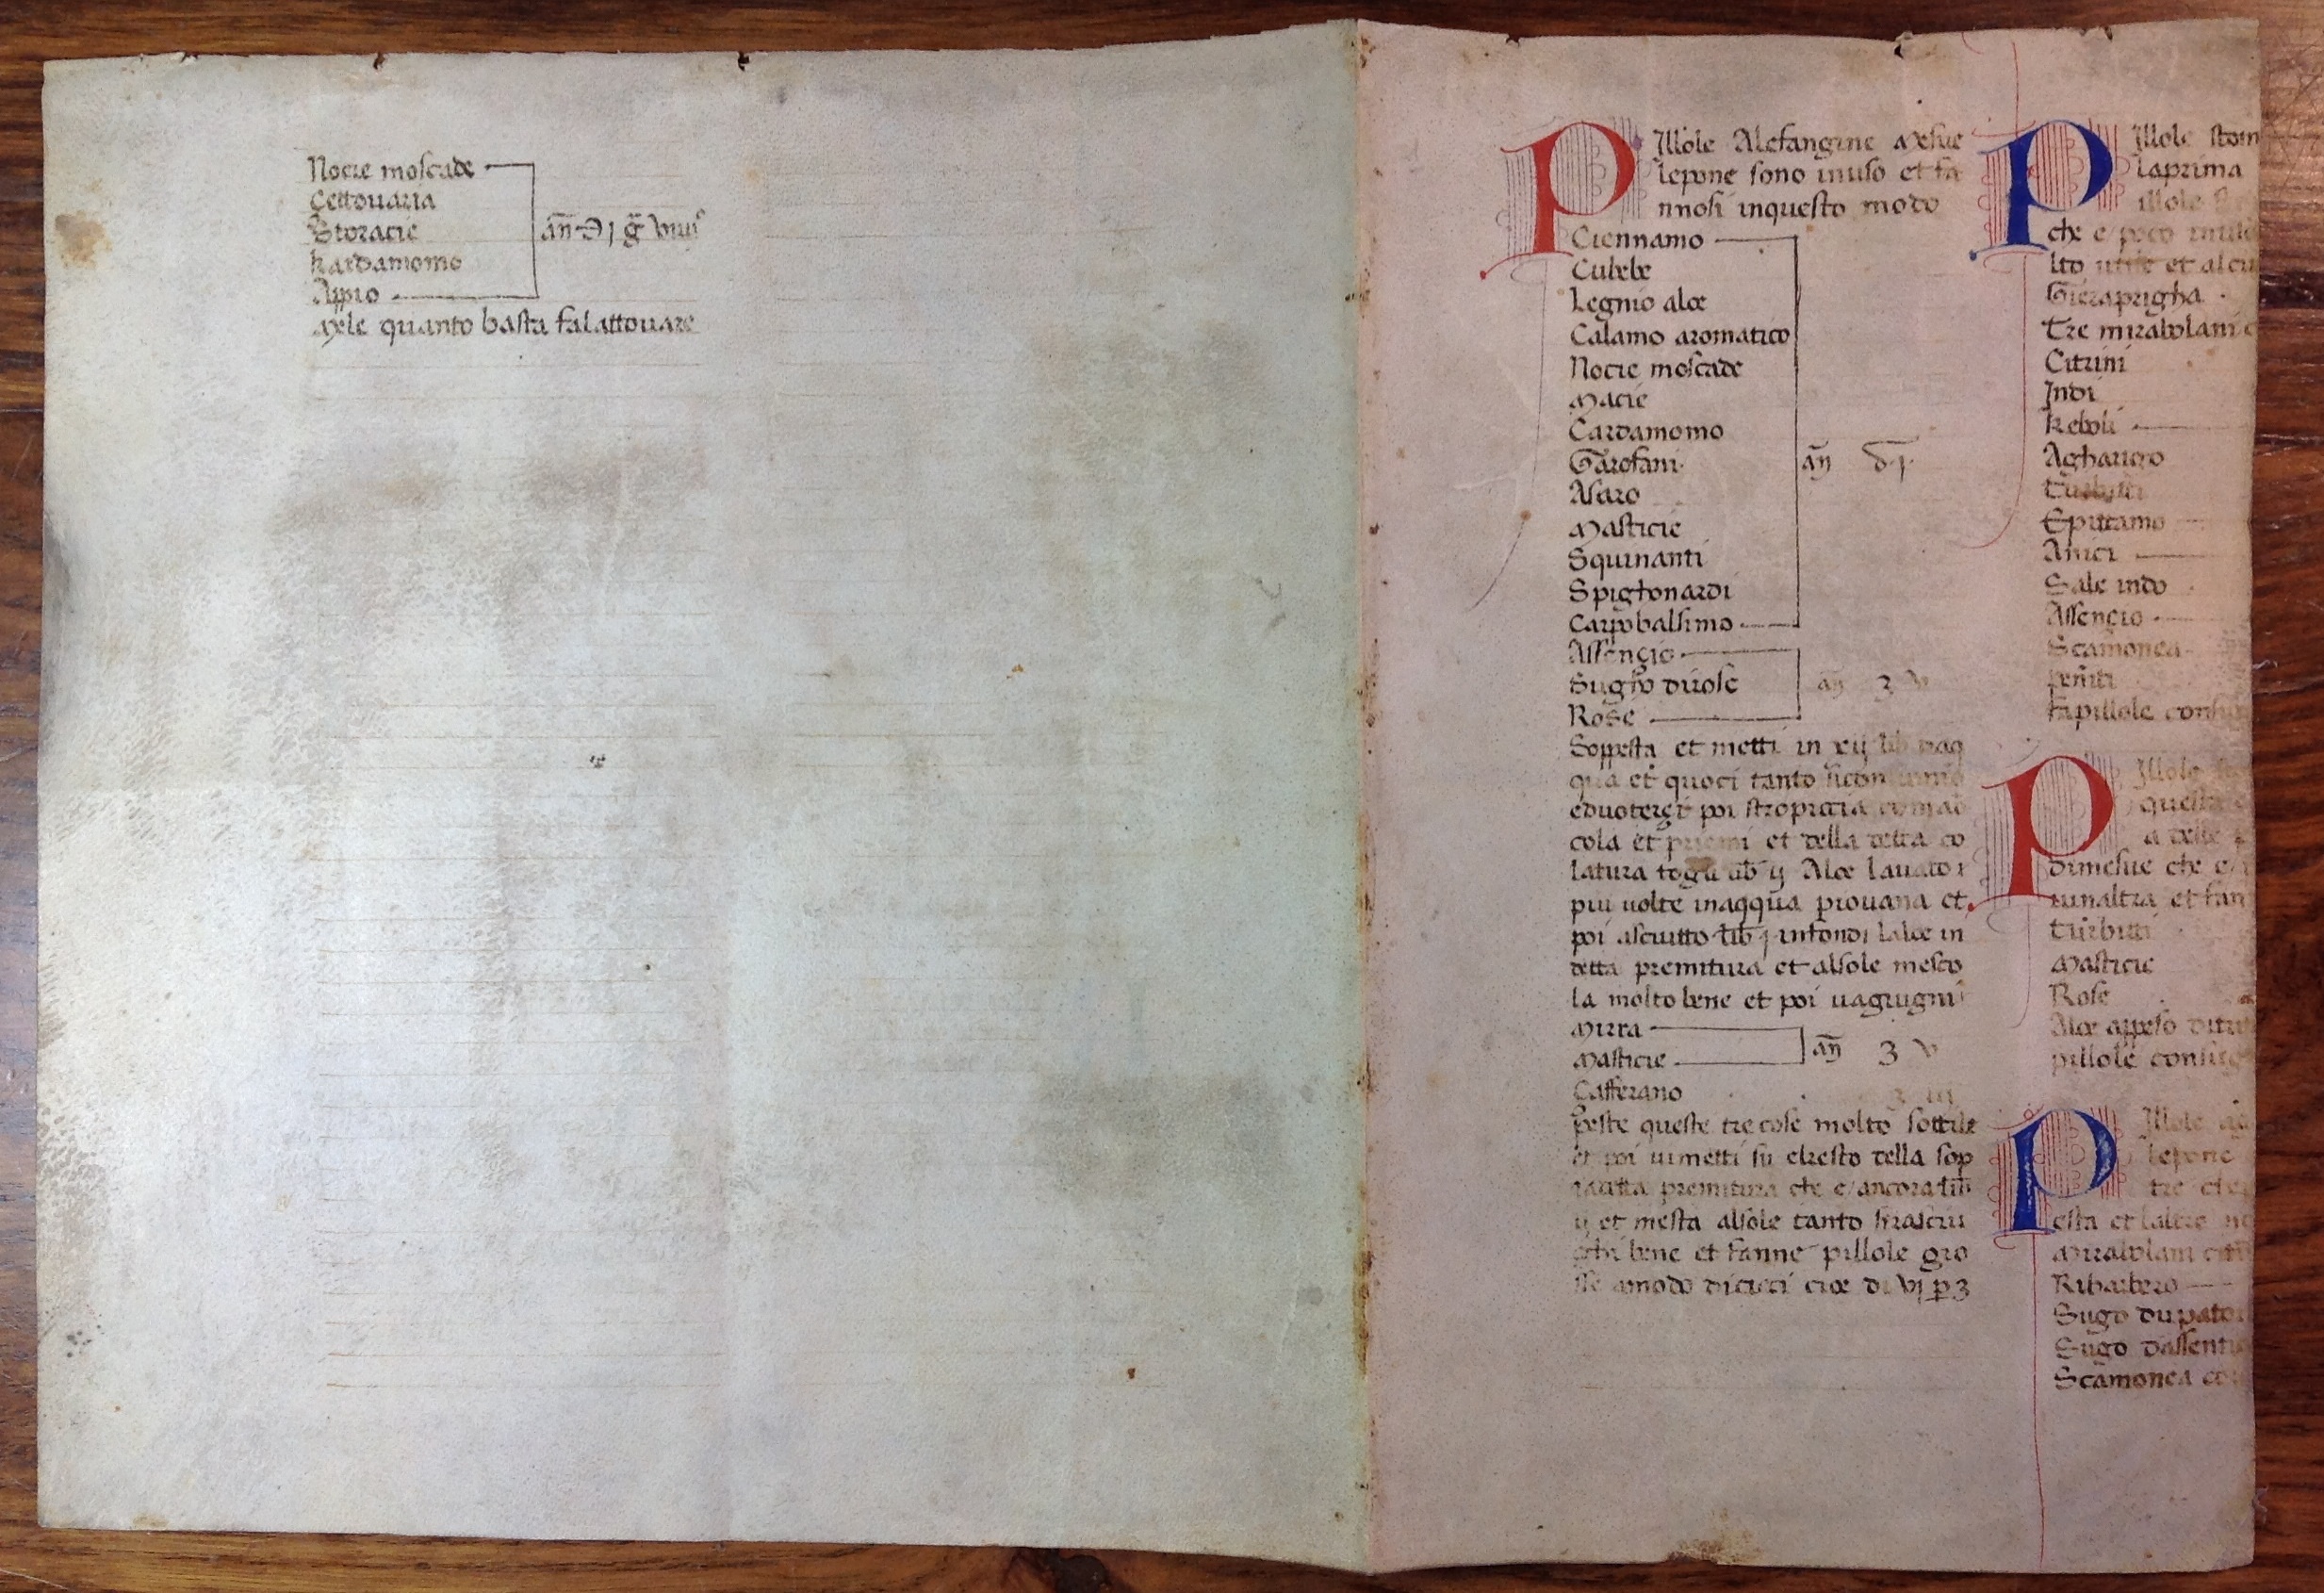 Nocie moscade
Cettouaria
Storacie
kardamomo
Appio
añ ℈ j
Mele quanto basta fa lattouare
Pillole Alefangine Mesue
lepone sono inuso et fa
nnosi inquesto modo
Ciennamo
Cubebe
Legnio aloe
Calamo aromatico
Nocie moscade
Macie
Cardamomo
Garofani
Asaro
Masticie
Squinanti
Spighonardi
Carpobalsimo
añ
Assengio
Sugho dirose
Rose
añ ʒ v
Soppesta et metti in xij lib
qua et quoci tanto
eduoterçi poi stropiccia
cola et priemi et della detta co
latura togli lib ij Aloe lauato
piu uolte inaqqua piouana et
poi asciutto lib j infondi laloe in
detta premitura et alsole mesco
la molto bene et poi uagiugni
Mirra
Masticie
añ ʒ v
Cafferano ʒ iij
peste queste tre cose molto sottile
et poi uimetti su elresto della sop
radetta premitura che e/ ancora lib
ij et mesta alsole tanto
bene et fanne pillole gro
sse amodo dicieci cioe di vj p ʒ
Pillole stom
laprima
illole
che e poco
lto utile et alcu
Gierapigha
Tre mirabolani
Citrini
Indi
keboli
Agharico
Turbitti
Epittamo
Anici
Sale indo
Assencio
Scamonea
fapillole con
Pillole
queste
a delle
dimesue che e/
unaltra et fan
Turbitti
Masticie
Rose
Aloe appeso
pillole con
Pillole
lepone
tre
esta et laltre
Mirabolani
Ribarbero
Sugo dupato
Sugo dassent
Scamonea co